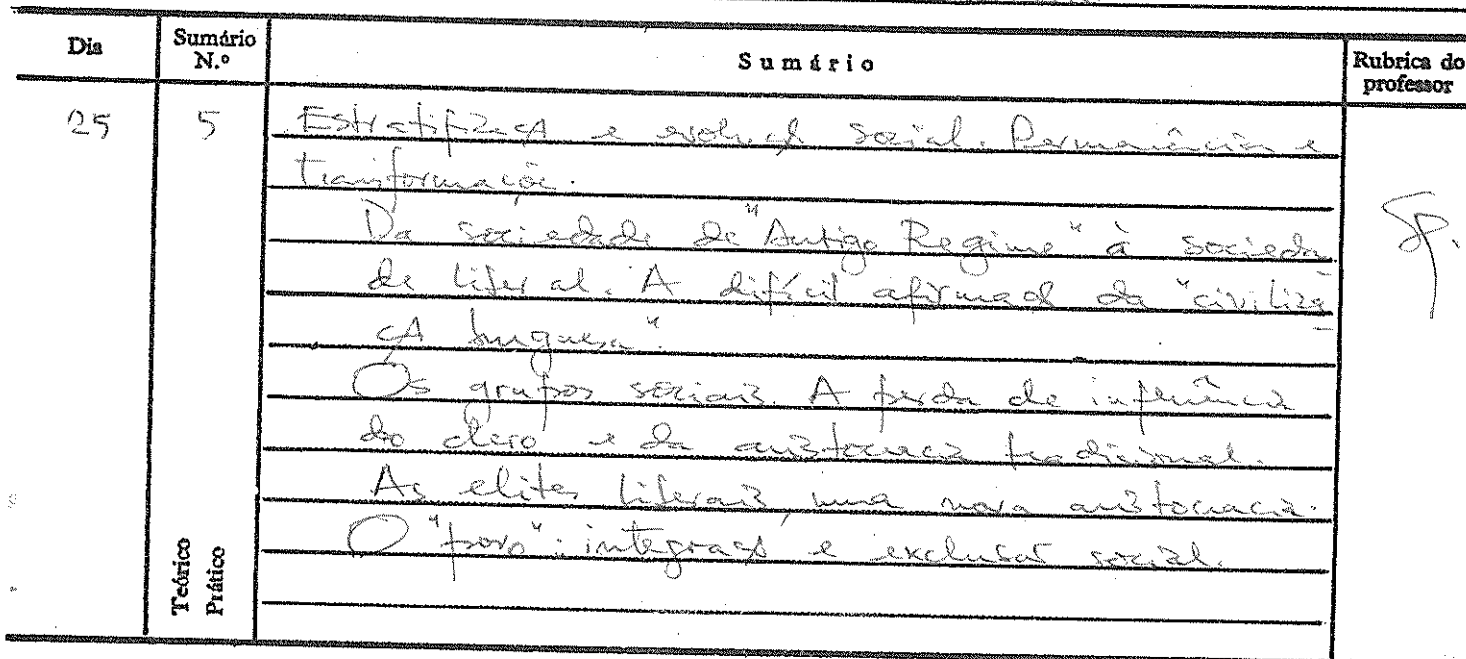 Dia Sumário N.º Sumário Rubrica do professor
25 5 Estratificação e evolução social. Permanência e
transformações.
Da sociedade de "Antigo Regime" à socieda
de liberal. A difícil afirmação da "civiliza
ção burguesa".
Os grupos sociais. A perda de influência
do clero e da aristocracia tradicional.
As elites liberais, uma nova aristocracia.
O "povo": integração e exclusão social.
Teórico
Prático